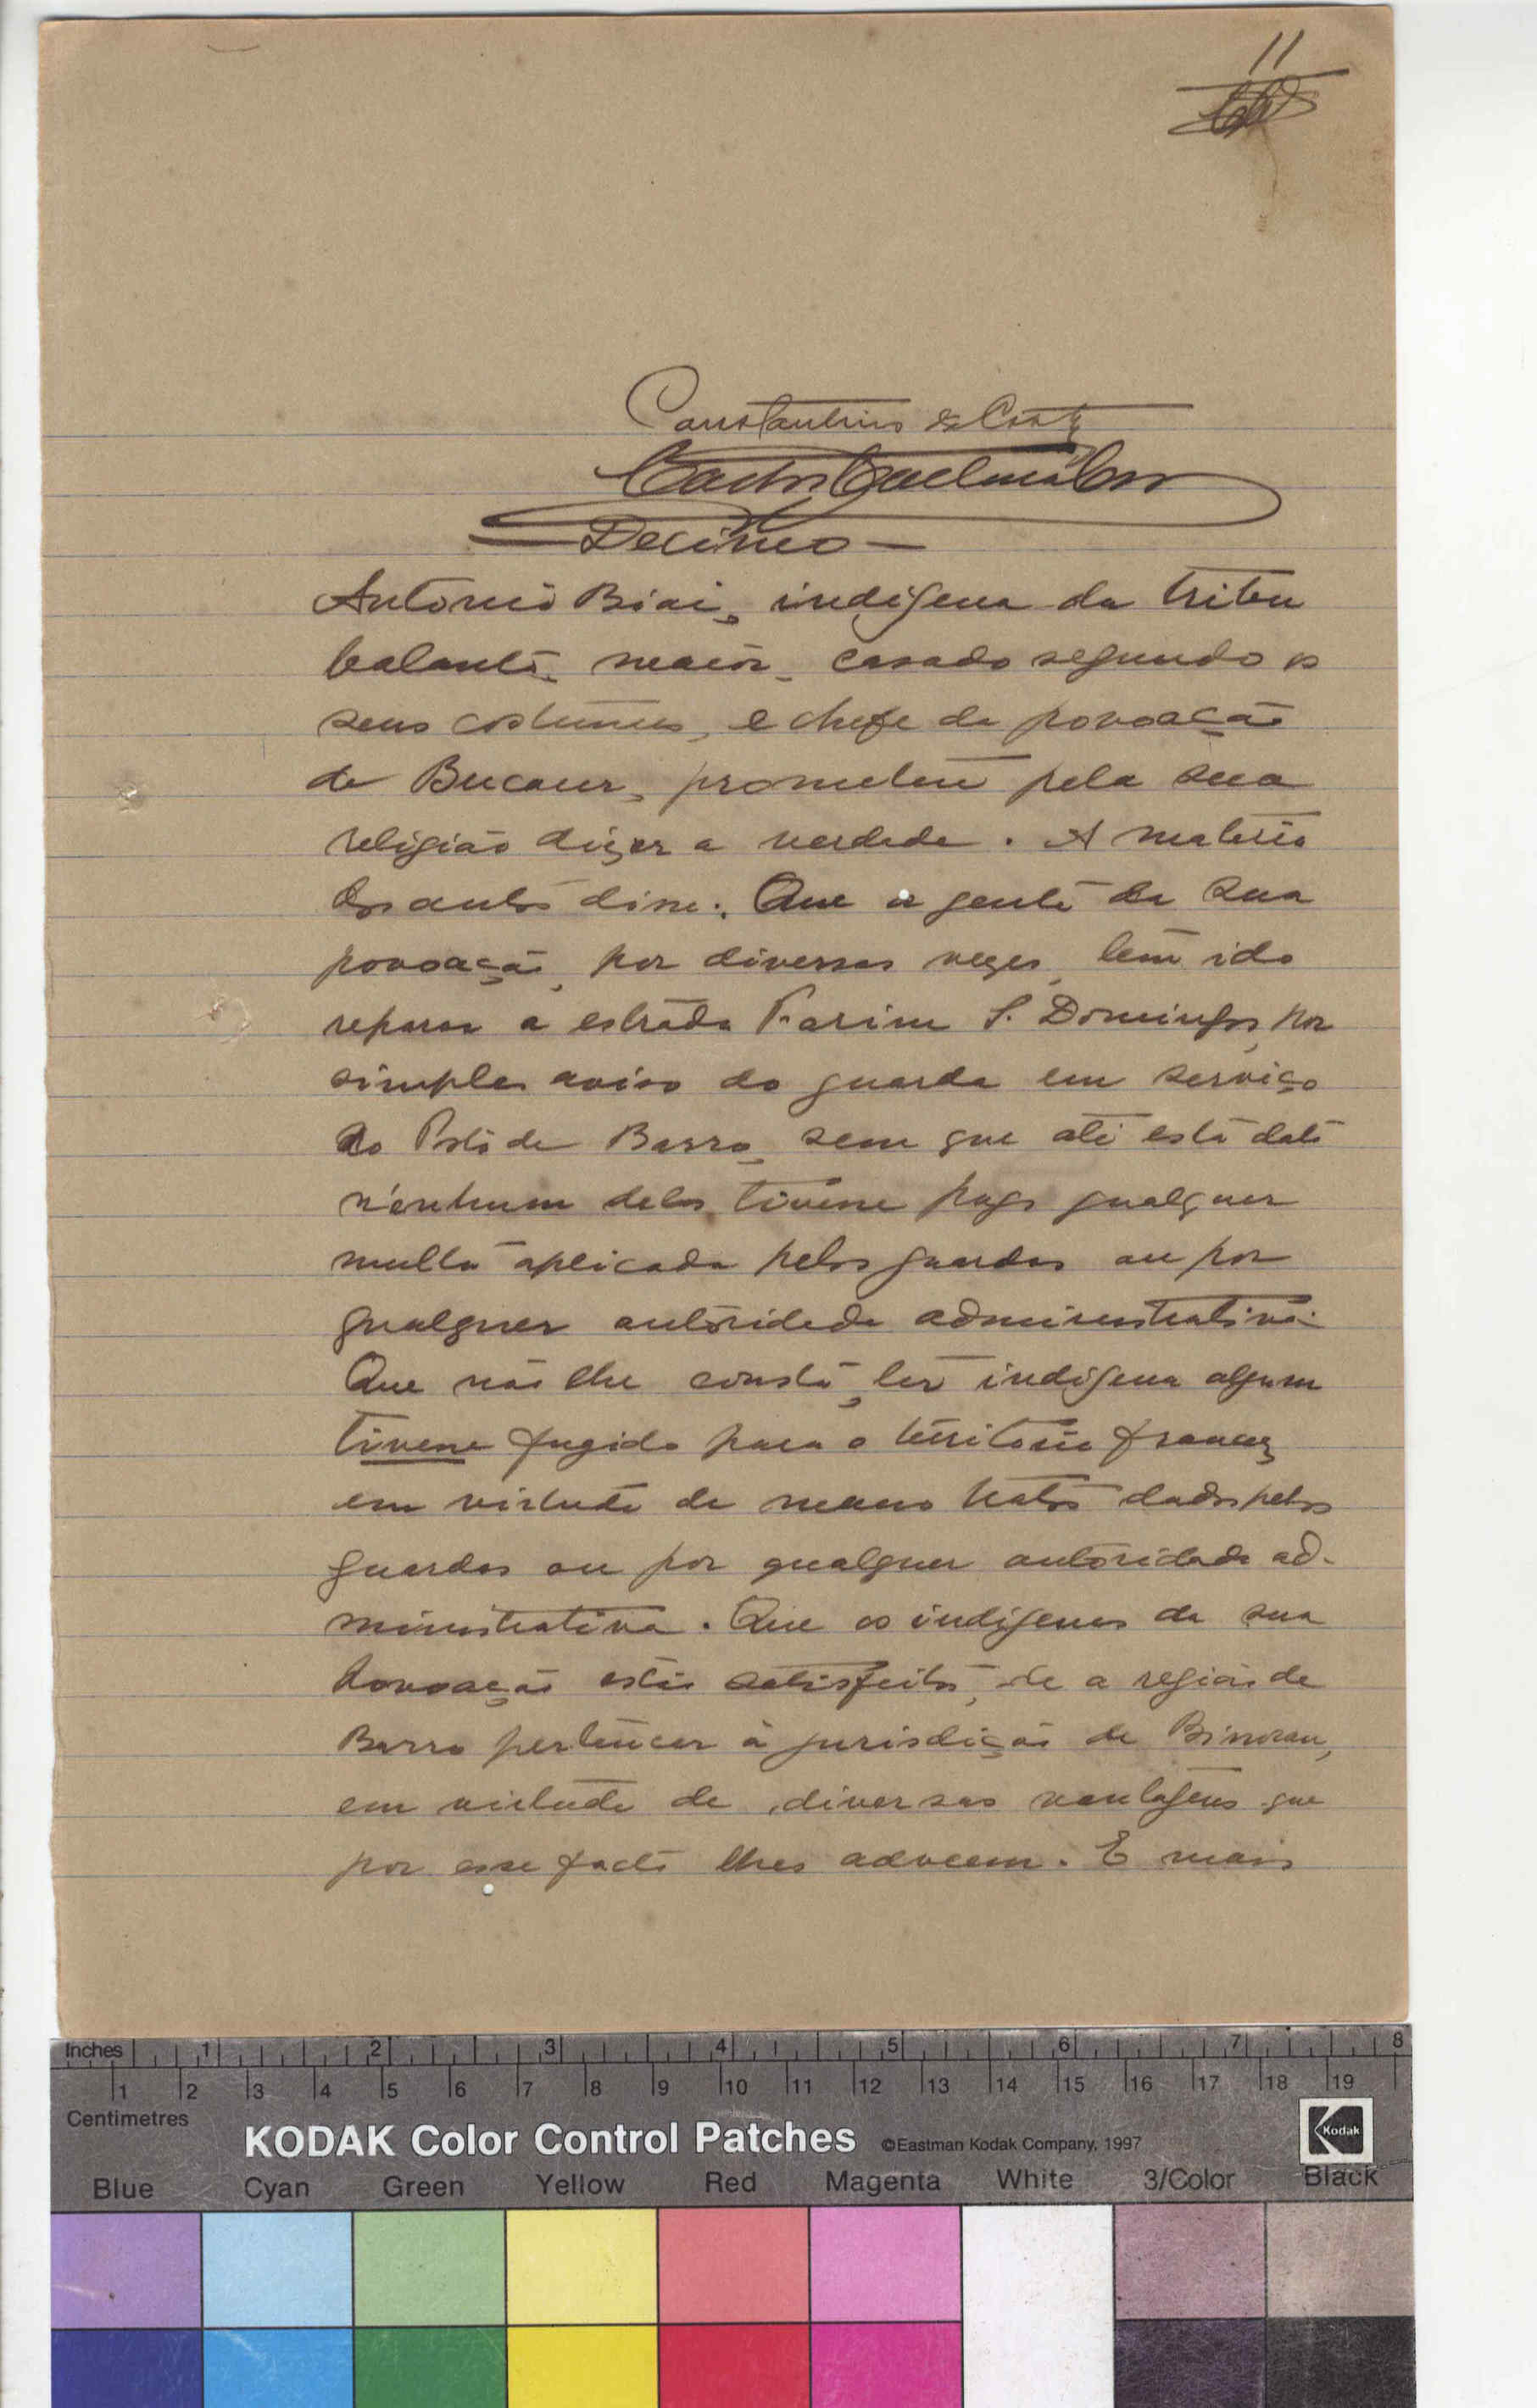 11
Constantino da Costa
Decimo
Antonio Biai, indigena da tribu
balanta, maior, casado segundo os
seus costumes, e chefe da povoação
de Bucaur, prometeu pela sua
religião dizer a verdade. A materia
dos autos disse: Que a gente da sua
povoação, por diversas vezes, tem ido
reparar a estrada Farim S. Domingos, por
simples aviso do guarda em serviço
no Posto de Barro, sem que até esta data
nenhum deles tivesse pago qualquer
multa aplicada pelos guardas ou por
qualquer autoridade administrativa.
Que não lhe consta, ter indigena algum
tivesse fugido para o territorio francez
em virtude de maus tratos dados pelos
guardas ou por qualquer autoridade ad-
ministrativa. Que os indigenas da sua
povoação estão satisfeitos, de a região de
Barro pertencer à jurisdição de Binoran,
em virtude de diversas vantagens que
por esse facto lhes adveem. E mais
Inches 1 2 3 4 5 6 7 8
1 2 3 4 5 6 7 8 9 10 11 12 13 14 15 16 17 18 19
Centimetres
KODAK Color Control Patches ©Eastman Kodak Company, 1997 Kodak
Blue Cyan Green Yellow Red Magenta White 3/Color Black